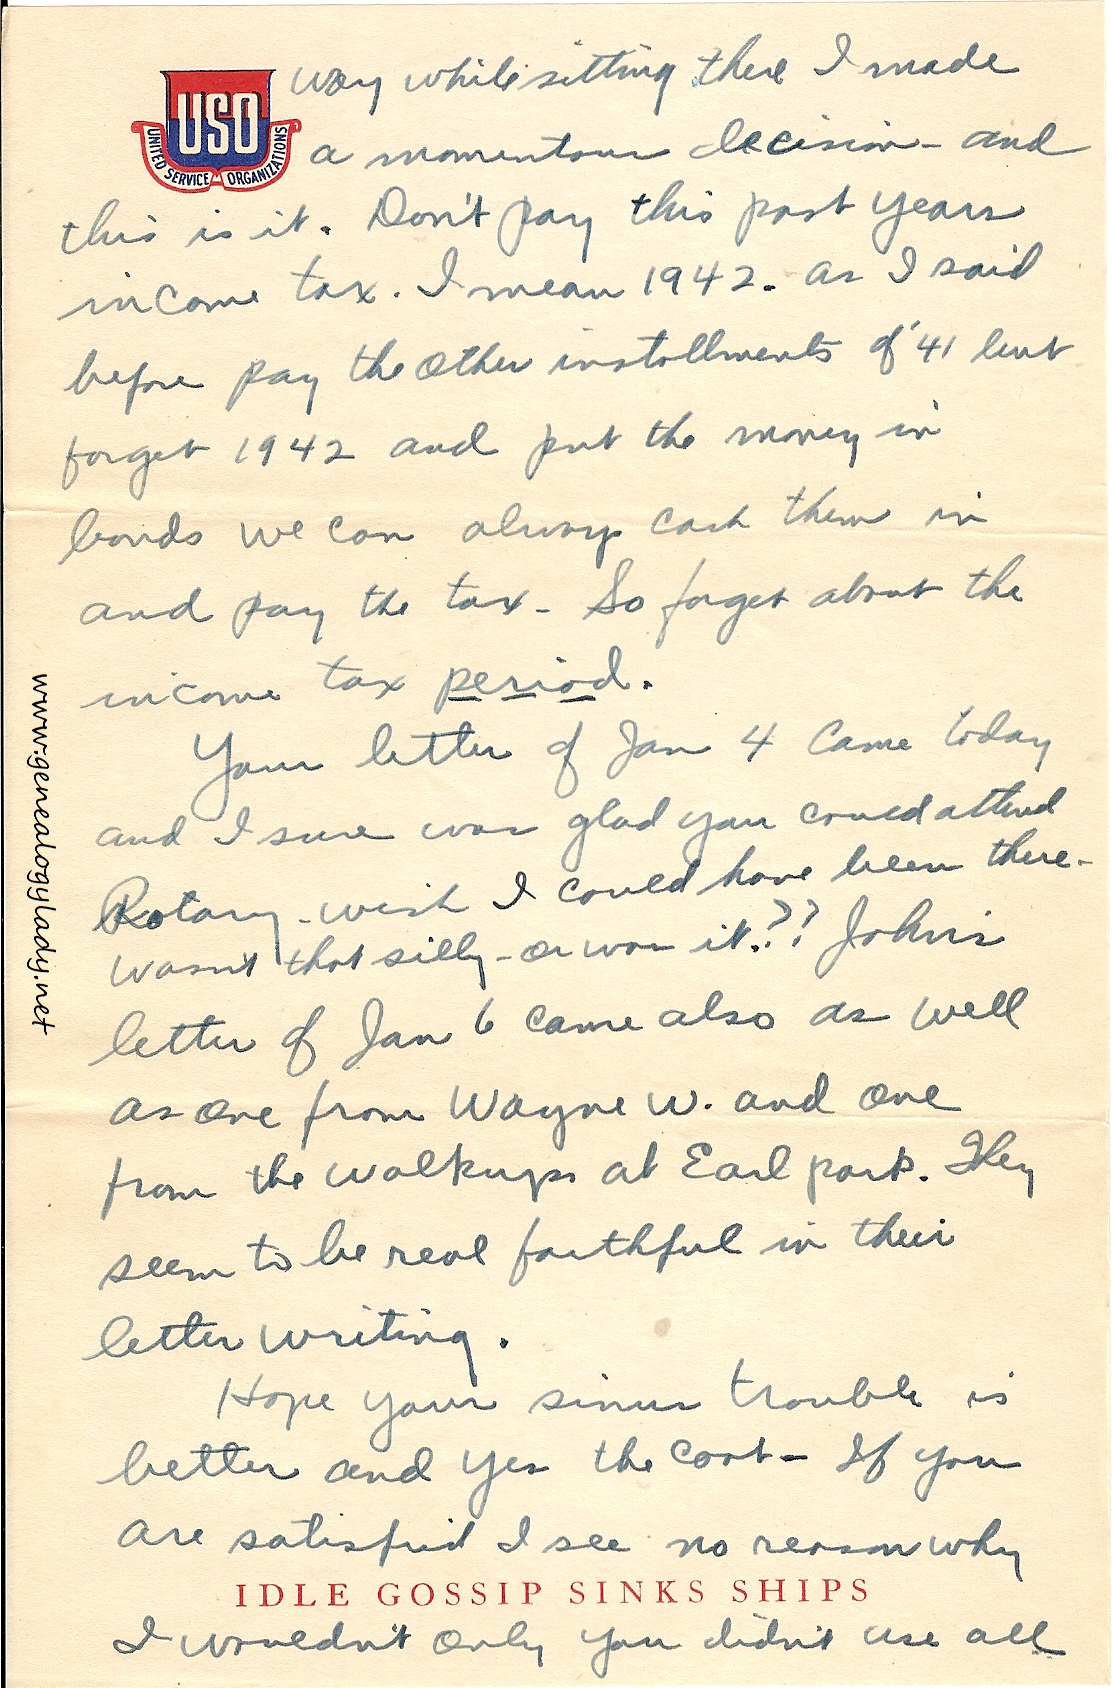 USO
UNITED SERVICE ORGANIZATIONS
way while sitting there I made
a momentous decision - and
this is it. Don't pay this past years
income tax. I mean 1942. as I said
before pay the other installments of '41 but
forget 1942 and put the money in
bonds we can always cash them in
and pay the tax - So forget about the
income tax period.
Your letter of Jan 4 came today
and I sure was glad you could attend
Rotary - wish I could have been there -
wasn't that silly - or was it.??? John's
letter of Jan 6 came also as well
as one from Wayne W. and one
from the Walkups at Earl park. They
seem to be real faithful in their
letter writing.
Hope your sinus trouble is
better and yes the coat - If you
are satisfied I see no reason why
IDLE GOSSIP SINKS SHIPS
I wouldn't only you didn't use all
www.genealogylady.net